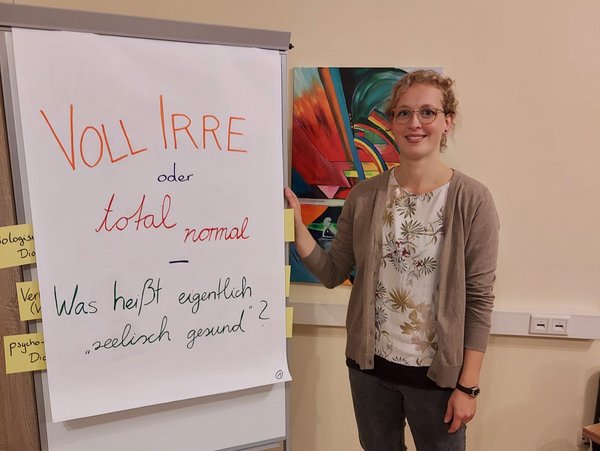 VOLL IRRE
oder
total normal
–
Was heißt eigentlich
„seelisch gesund“?
ologis
Dia
Ver
(V
psycho-
Dia